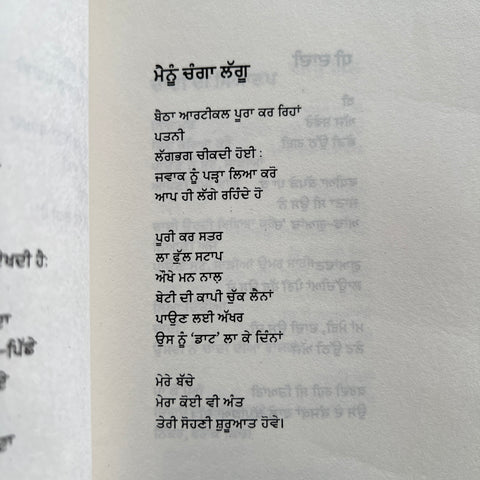 ਮੈਨੂੰ ਚੰਗਾ ਲੱਗੂ
ਬੈਠਾ ਆਰਟੀਕਲ ਪੂਰਾ ਕਰ ਰਿਹਾਂ
ਪਤਨੀ
ਲੱਗਭਗ ਚੀਕਦੀ ਹੋਈ :
ਜਵਾਕ ਨੂੰ ਪੜ੍ਹਾ ਲਿਆ ਕਰੋ
ਆਪ ਹੀ ਲੱਗੇ ਰਹਿੰਦੇ ਹੋ
ਪੂਰੀ ਕਰ ਸਤਰ
ਲਾ ਫੁੱਲ ਸਟਾਪ
ਔਖੇ ਮਨ ਨਾਲ਼
ਬੇਟੀ ਦੀ ਕਾਪੀ ਚੁੱਕ ਲੈਨਾਂ
ਪਾਉਣ ਲਈ ਅੱਖਰ
ਉਸ ਨੂੰ ‘ਡਾਟ’ ਲਾ ਕੇ ਦਿੰਨਾਂ
ਮੇਰੇ ਬੱਚੇ
ਮੇਰਾ ਕੋਈ ਵੀ ਅੰਤ
ਤੇਰੀ ਸੋਹਣੀ ਸ਼ੁਰੂਆਤ ਹੋਵੇ।